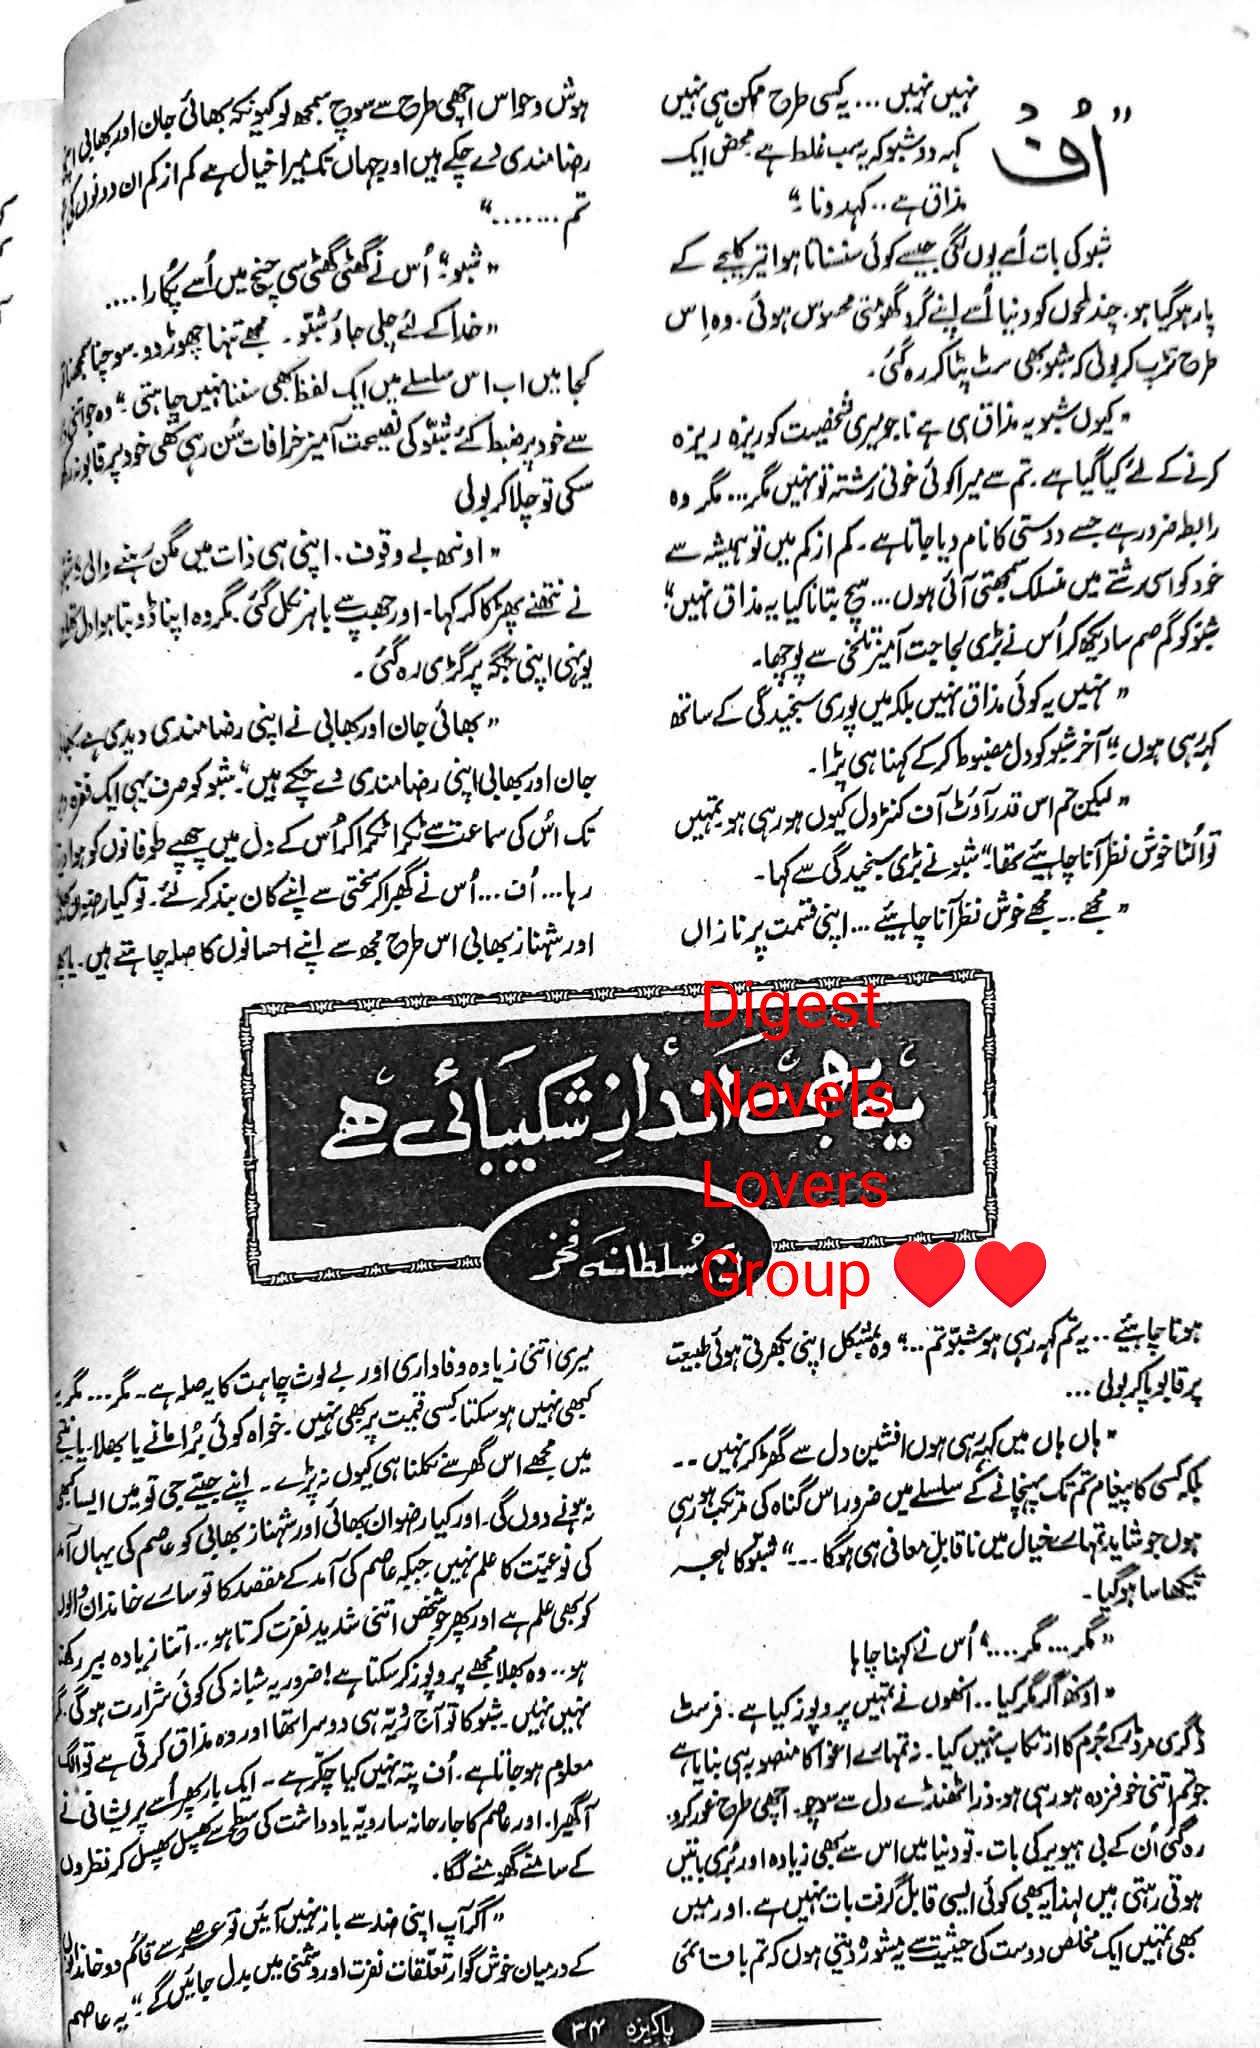 ”اُف نہیں نہیں ... یہ کسی طرح ممکن ہی نہیں
کہہ دو شبو کہ یہ سب غلط ہے۔ محض ایک
مذاق ہے .. کہہ دو نا۔“
شبو کی بات اُسے یوں لگی جیسے کوئی سنسناتا ہوا تیر کلیجے کے
پار ہو گیا ہو۔ چند لمحوں کو دنیا اُسے اپنے گرد گھومتی محسوس ہوئی۔ وہ اِس
طرح تڑپ کر بولی کہ شبو بھی سٹ پٹا کر رہ گئی۔
”کیوں شبو یہ مذاق ہی ہے نا جو میری شخصیت کو ریزہ ریزہ
کرنے کے لئے کیا گیا ہے۔ تم سے میرا کوئی خونی رشتہ تو نہیں مگر ... مگر وہ
رابطہ ضرور ہے جسے دوستی کا نام دیا جاتا ہے۔ کم از کم میں تو ہمیشہ سے
خود کو اسی رشتے میں منسلک سمجھتی آئی ہوں ... سچ بتانا کیا یہ مذاق نہیں“
شبو کو گم صم سا دیکھ کر اُس نے بڑی لجاجت آمیز تلخی سے پوچھا۔
”نہیں یہ کوئی مذاق نہیں بلکہ میں پوری سنجیدگی کے ساتھ
کہہ رہی ہوں۔“ آخر شبو کو دل مضبوط کر کے کہنا ہی پڑا۔
”لیکن تم اس قدر آؤٹ آف کنٹرول کیوں ہو رہی ہو۔ تمہیں
تو اُلٹا خوش نظر آنا چاہیئے تھا۔“ شبو نے بڑی سنجیدگی سے کہا۔
”مجھے ... مجھے خوش نظر آنا چاہیئے ... اپنی قسمت پر نازاں
ہونا چاہیئے ... یہ تم کہہ رہی ہو شبو تم ...“ وہ بمشکل اپنی بکھرتی ہوئی طبیعت
پر قابو پا کر بولی ...
”ہاں ہاں میں کہہ رہی ہوں افشین دل سے گھڑ کر نہیں ..
بلکہ کسی کا پیغام تم تک پہنچانے کے سلسلے میں ضرور اس گناہ کی مرتکب ہو رہی
ہوں جو شاید تمہارے خیال میں ناقابلِ معافی ہی ہو گا ...“ شبو کا لہجہ
تیکھا سا ہو گیا۔
”مگر ... مگر ....“ اُس نے کہنا چاہا
”اونھ اگر مگر کیا .. انھوں نے تمہیں پروپوز کیا ہے۔ فرسٹ
ڈگری مرڈر کے جُرم کا ارتکاب نہیں کیا۔ نہ تمہارے اغوا کا منصوبہ ہی بنایا ہے
جو تم اتنی خوفزدہ ہو رہی ہو۔ ذرا ٹھنڈے دل سے سوچو۔ اچھی طرح غور کرو۔
رہ گئی اُن کے بی ہیویر کی بات۔ تو دنیا میں اس سے بھی زیادہ اور بُری باتیں
ہوتی رہتی ہیں لہٰذا یہ بھی کوئی ایسی قابل گرفت بات نہیں ہے۔ اور میں
بھی تمہیں ایک مخلص دوست کی حیثیت سے یہ مشورہ دیتی ہوں کہ تم باقائمی
ہوش و حواس اچھی طرح سے سوچ سمجھ لو کیونکہ بھائی جان اور بھابی
رضامندی دے چکے ہیں اور جہاں تک میرا خیال ہے کم از کم ان دونوں کی
تم .......“
”شبو“ اُس نے گھٹی گھٹی سی چیخ میں اُسے پُکارا ....
”خدا کے لئے چلی جاؤ شبو۔ مجھے تنہا چھوڑ دو۔ سوچنا سمجھنا
کجا میں اب اس سلسلے میں ایک لفظ بھی سننا نہیں چاہتی۔“ وہ جو اتنی
سے خود پر ضبط کئے شبو کی نصیحت آمیز خرافات سُن رہی تھی خود پر قابو نہ رکھ
سکی تو چلا کر بولی
”اونھ بے وقوف۔ اپنی ہی ذات میں مگن رہنے والی“
نے نتھنے پھڑکا کر کہا۔ اور جھپ سے باہر نکل گئی۔ مگر وہ اپنا ڈوبتا ہوا دل
یونہی اپنی جگہ پر گڑی رہ گئی۔
”بھائی جان اور بھابی نے اپنی رضامندی دیدی ہے
جان اور بھابی اپنی رضامندی دے چکے ہیں“۔ شبو کو صرف یہی ایک فقرہ
تک اُس کی سماعت سے ٹکرا ٹکرا کر اُس کے دل میں چھپے طوفانوں کو ہوا
رہا ... اُف ... اُس نے گھبرا کر سختی سے اپنے کان بند کر لئے۔ تو کیا
اور شہناز بھابی اس طرح مجھ سے اپنے احسانوں کا صلہ چاہتے ہیں۔
میری اتنی زیادہ وفاداری اور بے لوث چاہت کا یہ صلہ ہے۔ مگر ... مگر یہ
کبھی نہیں ہو سکتا۔ کسی قیمت پر بھی نہیں۔ خواہ کوئی بُرا مانے یا بھلا۔
میں مجھے اس گھر سے نکلنا ہی کیوں نہ پڑے۔ اپنے جیتے جی تو میں ایسا کبھی
نہ ہونے دوں گی۔ اور کیا رضوان بھائی اور شہناز بھابی کو عاصم کی یہاں آمد
کی نوعیّت کا علم نہیں جبکہ عاصم کی آمد کے مقصد کا تو سارے خاندان والوں
کو بھی علم ہے اور پھر جو شخص اتنی شدید نفرت کرتا ہو .. اتنا زیادہ بیر رکھتا
ہو .. وہ بھلا مجھے پروپوز کر سکتا ہے! ضرور یہ شبانہ کی کوئی شرارت ہو گی۔
نہیں نہیں۔ شبو کا تو آج رویّہ ہی دوسرا تھا اور وہ مذاق کرتی ہے تو الگ
معلوم ہو جاتا ہے۔ اُف پتہ نہیں کیا چکّر ہے۔ ایک بار پھر اُسے پریشانی نے
آ گھیرا۔ اور عاصم کا جارحانہ سا رویہ یادداشت کی سطح سے پھسل پھسل کر نظروں
کے سامنے گھومنے لگا۔
”اگر آپ اپنی ضد سے باز نہیں آئیں تو عرصے سے قائم دو خاندانوں
کے درمیان خوش گوار تعلّقات نفرت اور دشمنی میں بدل جائیں گے۔“ یہ عاصم
یہ بھی اندازِ شکیبائی ہے
سُلطانہ فخر
Digest
Novels
Lovers
Group ❤❤
پاکیزہ ۳۴